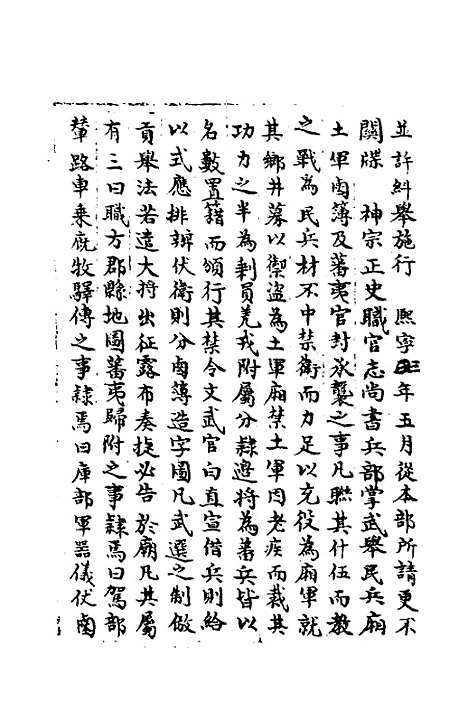 並許糾舉施行　熙寧四年五月從本部所請更不
關牒　神宗正史職官志尚書兵部掌武舉民兵廂
土軍鹵簿及蕃夷官封承襲之事凡聯其什伍而教
之戰為民兵材不中禁衛而力足以充役為廂軍就
其鄉井募以禦盜為土軍廂禁土軍因老疾而裁其
功力之半為剩員羌戎附屬分隸邊將為蕃兵皆以
名數置籍而頒行其禁令文武官白直宣借兵則給
以式應排辦伏衛則分鹵薄造字圖凡武選之制倣
貢舉法若遣大將出征露布奏捷必告於廟凡其屬
有三曰職方郡縣地圖蕃夷歸附之事隸焉曰駕部
輦路車乘廐牧驛傳之事隸焉曰庫部軍器儀伏鹵